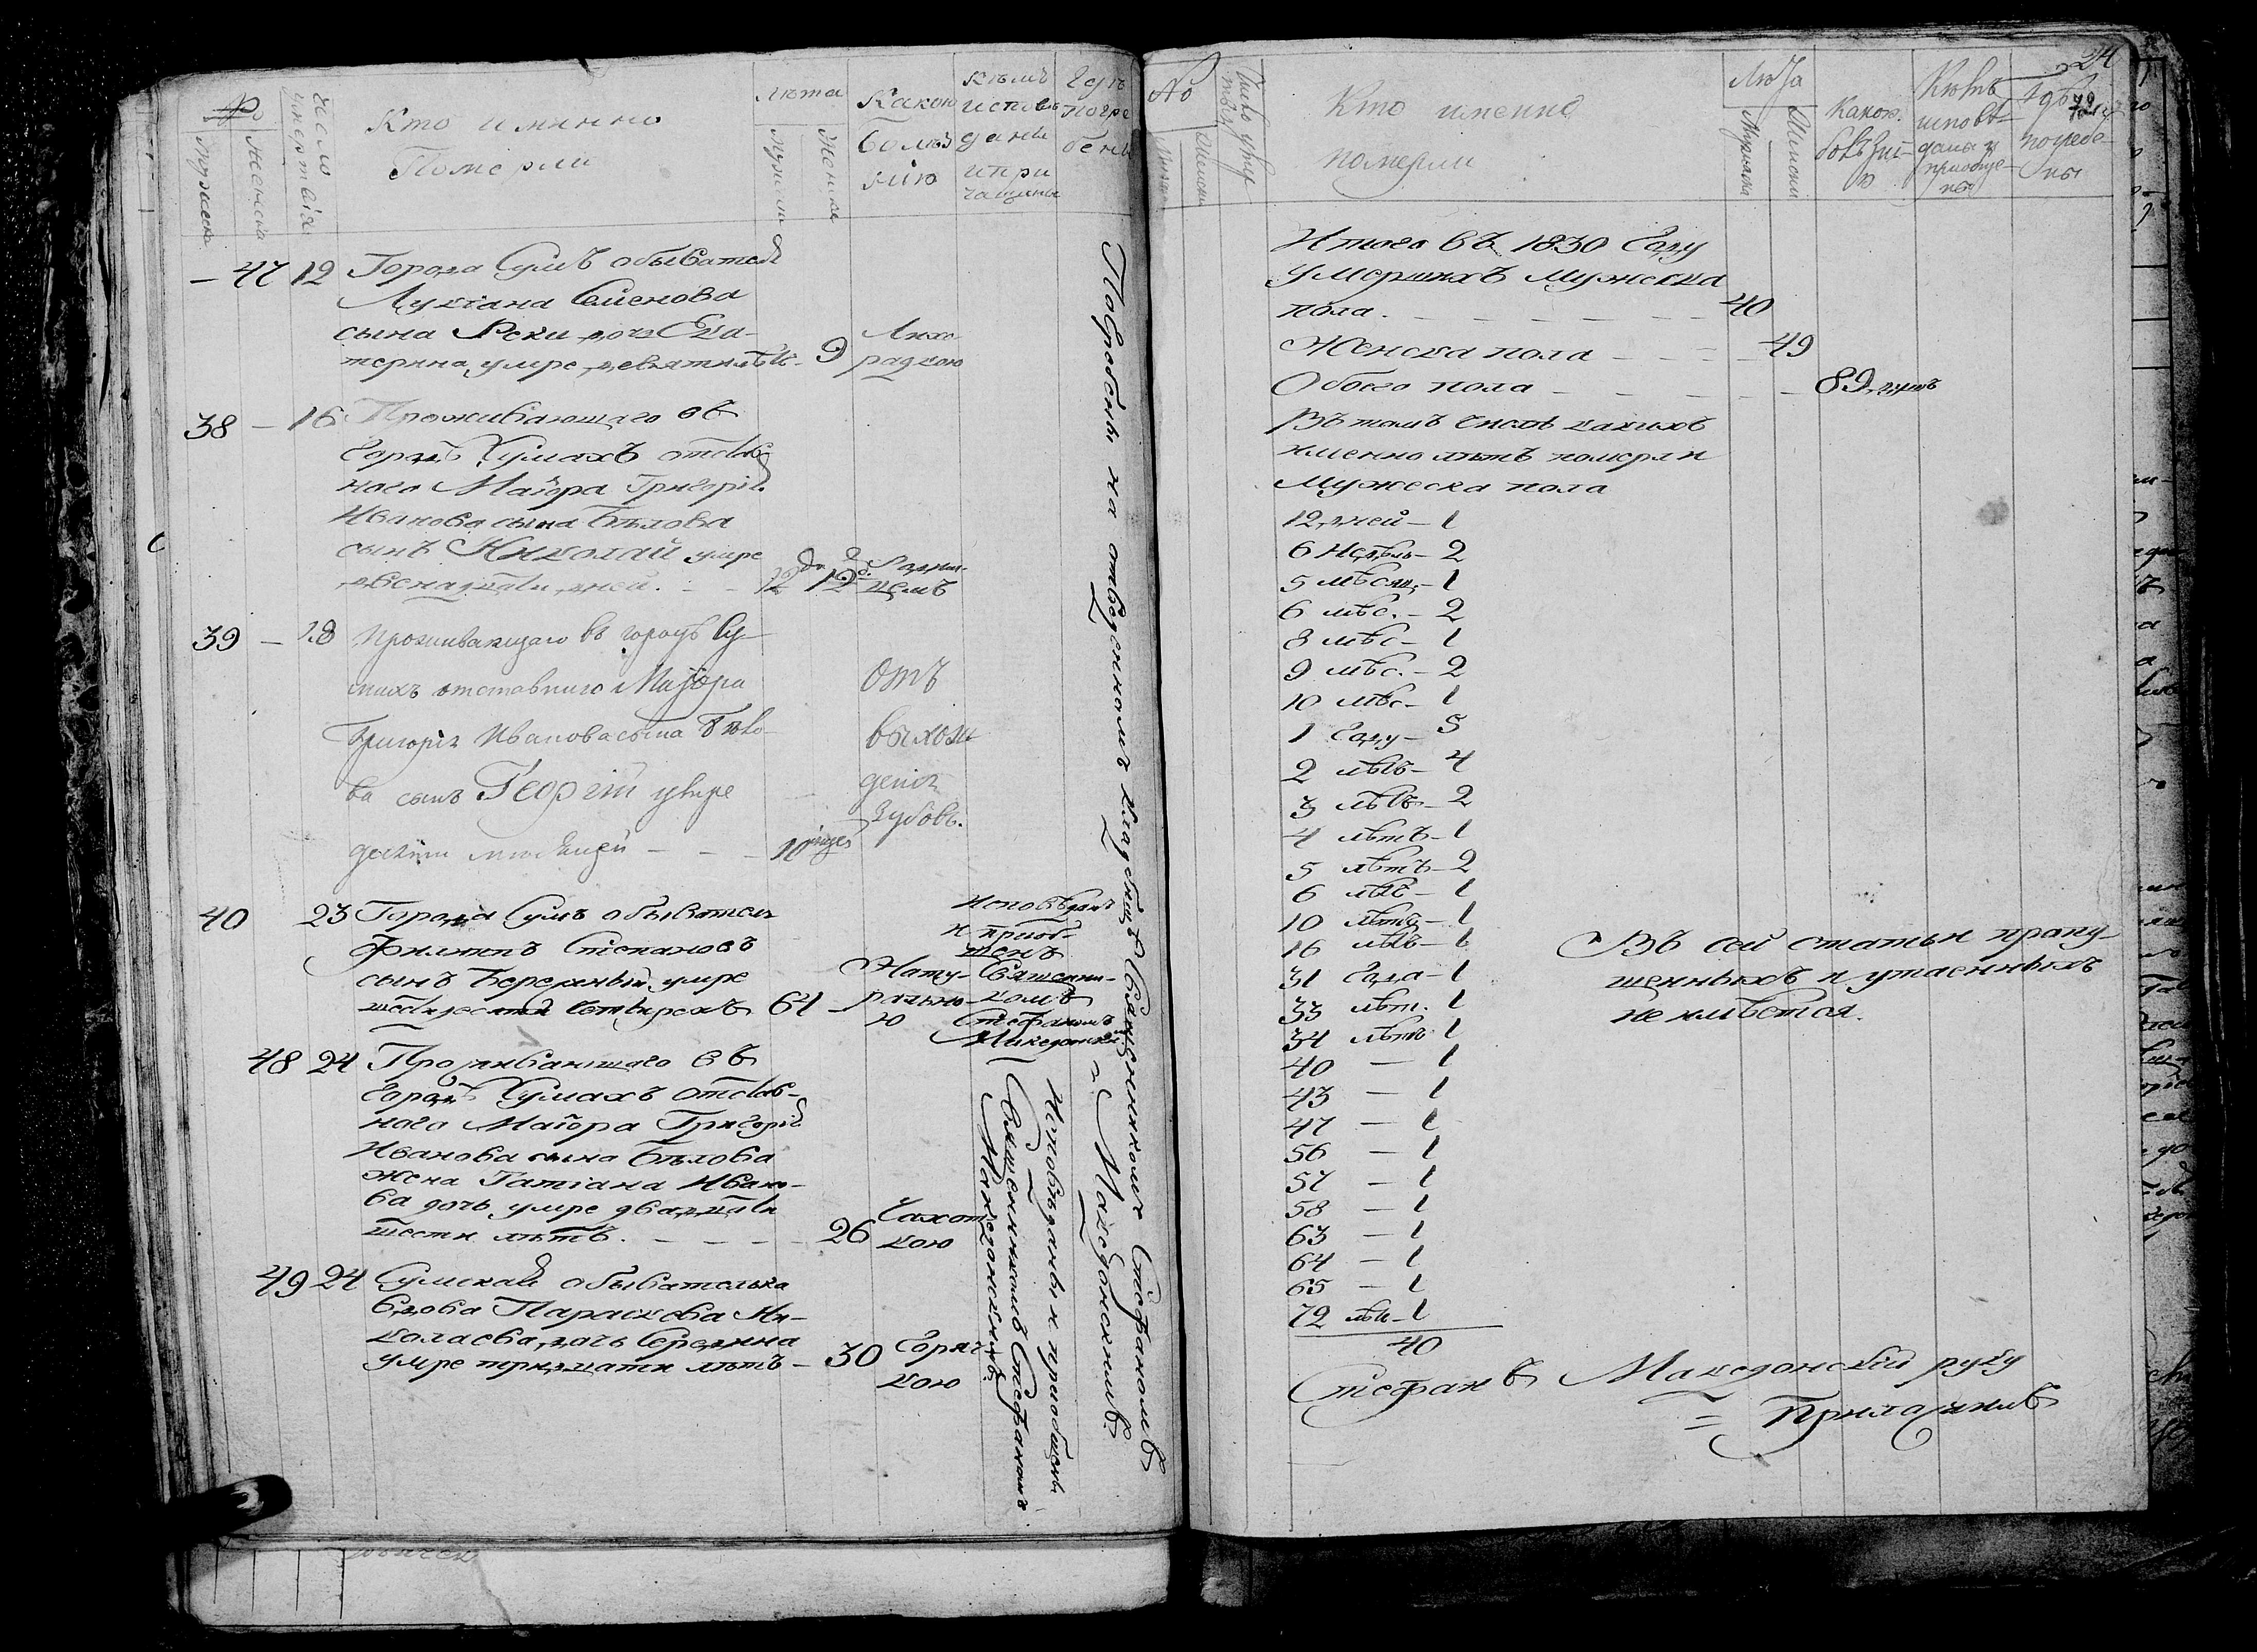 №
Мужеска
Женска
Число умертвія
Кто именно
Померли
Лѣта
Мужеска
Женска
Какою
болѣз
нію
Кѣмъ
исповѣ
даны
и при
чащены
Гдѣ
погре
бены
— 47 12 Города Сумъ обывателя
Лукіана Семенова
сына Рѣки дочь Ека-
терина, умре девяти лѣтъ — 9
Лихо
радкою
38 — 16 Проживающаго въ
городѣ Сумахъ отстав
наго Маіора Григорія
Иванова сына Бѣлова
сынъ Николай умре
двенадцати дней. — 12 дн
Родим-
цемъ
39 — 18 Проживающаго въ городѣ Су-
махъ отставнаго Маіора
Григорія Иванова сына Бѣло-
ва сынъ Георгій умре
десяти месяцей — — — 10
отъ
выхож
денія
зубовъ.
40 23 Города Сумъ обыватель
Филиппъ Стефановъ
сынъ Бережный, умре
шестидесяти четырехъ 64 —
Нату-
рально
ю
Исповѣданъ
и приоб-
щенъ
Священни-
комъ
Стефаномъ
Македонскимъ
48 24 Проживающаго въ
городѣ Сумахъ отстав-
наго Маіора Григорія
Иванова сына Бѣлова
жена Татіана Ивано-
ва дочь, умре двадцати
шести лѣтъ. — — — — 26
Чахот
кою
49 24 Сумская обывателька
вдова Параскева Ни-
колаева дочь Середина
умре тридцати лѣтъ — 30
Горяч
кою
Исповѣданы и приобщены
Священникомъ Стефаномъ
Македонскимъ.
Погребены на отведенномъ кладбищѣ Священникомъ Стефаномъ
Македонскимъ
24
№
Число умер
твія
Кто именно
померли
Лѣта
Мужеска
Женска
Какою
болѣзні-
ю
Кѣмъ
исповѣ-
даны и
приобще-
ны
Гдѣ
погребе-
ны
Итого въ 1830 Году
умершихъ Мужеска
пола. — — — — — — 40
Женска пола — — — — 49
Обоего пола — — — — — 89 душъ
Въ томъ числѣ какихъ
именно лѣтъ померли
Мужеска пола
12 дней — 1
6 Недѣль — 2
5 мѣсяц. — 1
6 мѣс. — 2
8 мѣс — 1
9 мѣс. — 2
10 мѣс — 1
1 Году — 5
2 лѣтъ — 4
3 лѣтъ — 2
4 лѣтъ — 1
5 лѣтъ — 2
6 лѣтъ — 1
10 лѣтъ — 1
16 лѣтъ — 1
31 Года — 1
33 лѣт. 1
34 лѣтъ 1
40 — 1
43 — 1
47 — 1
56 — 1
57 — 1
58 — 1
63 — 1
64 — 1
65 — 1
72 лѣтъ — 1
40
Въ сей статьи пропу-
щенныхъ и утаенныхъ
не имѣется.
Стефанъ Македонскій руку
Приложилъ